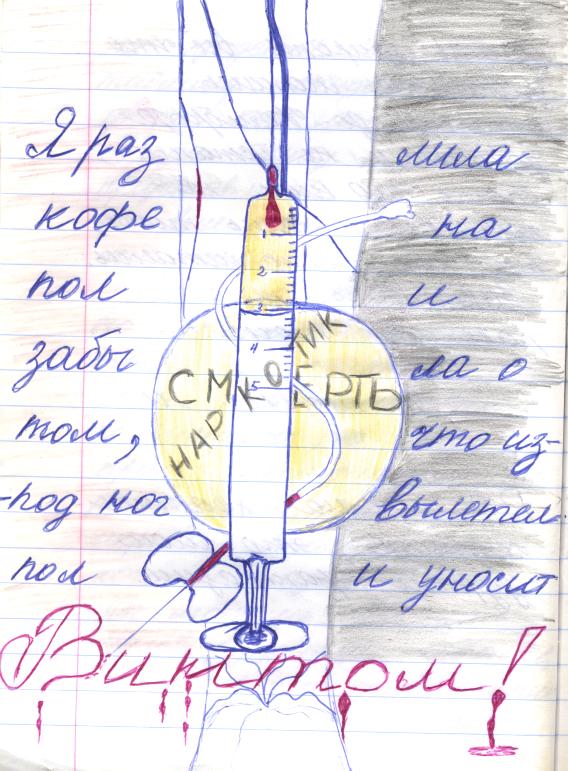 Я раз лила
кофе на
1
2
пол и
3
забы ла о
4
5
СМЕРТЬ
НАРКОТИК
том, что из-
-под ног вылетел
пол и уносит
Винтом!